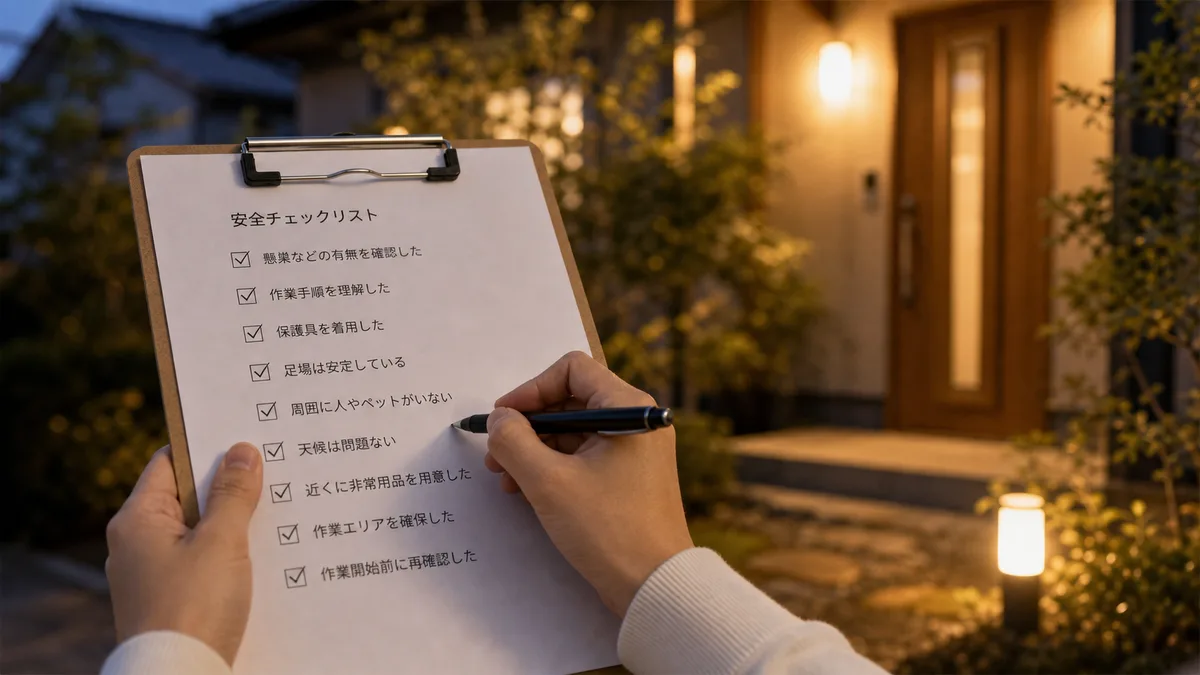 安全チェックリスト
懸巣などの有無を確認した
作業手順を理解した
保護具を着用した
足場は安定している
周囲に人やペットがいない
天候は問題ない
近くに非常用品を用意した
作業エリアを確保した
作業開始前に再確認した